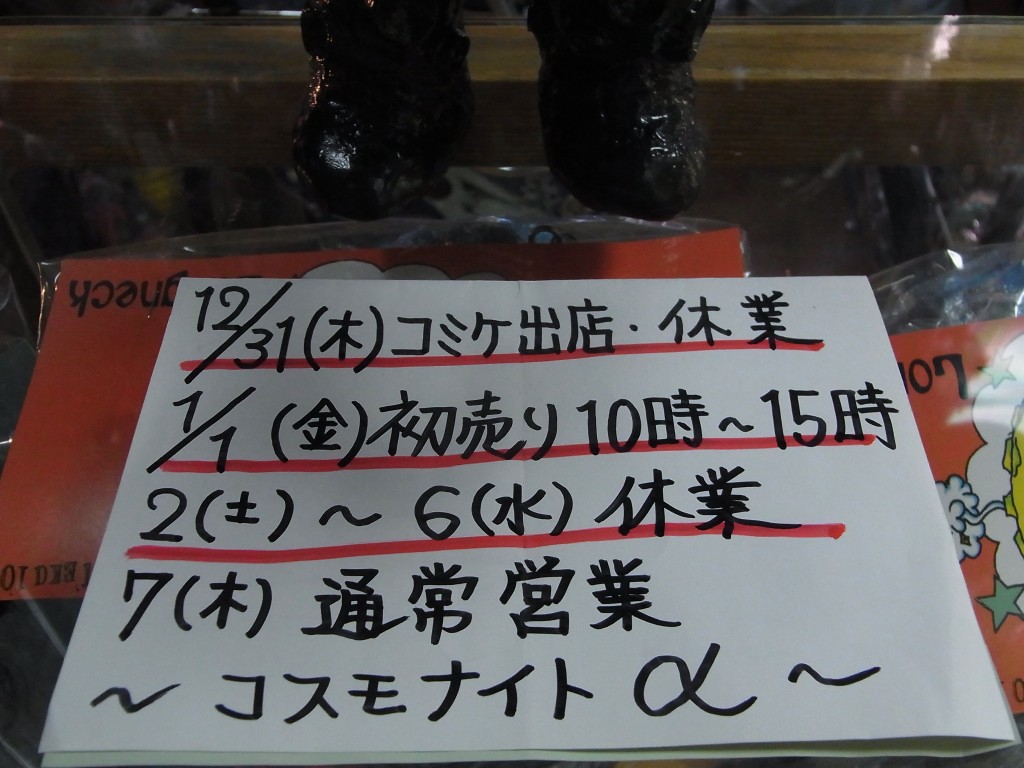 12/31(木)コミケ出店・休業
1/1(金)初売り10時~15時
2(土)~6(水)休業
7(木)通常営業
~コスモナイトα~
gneck